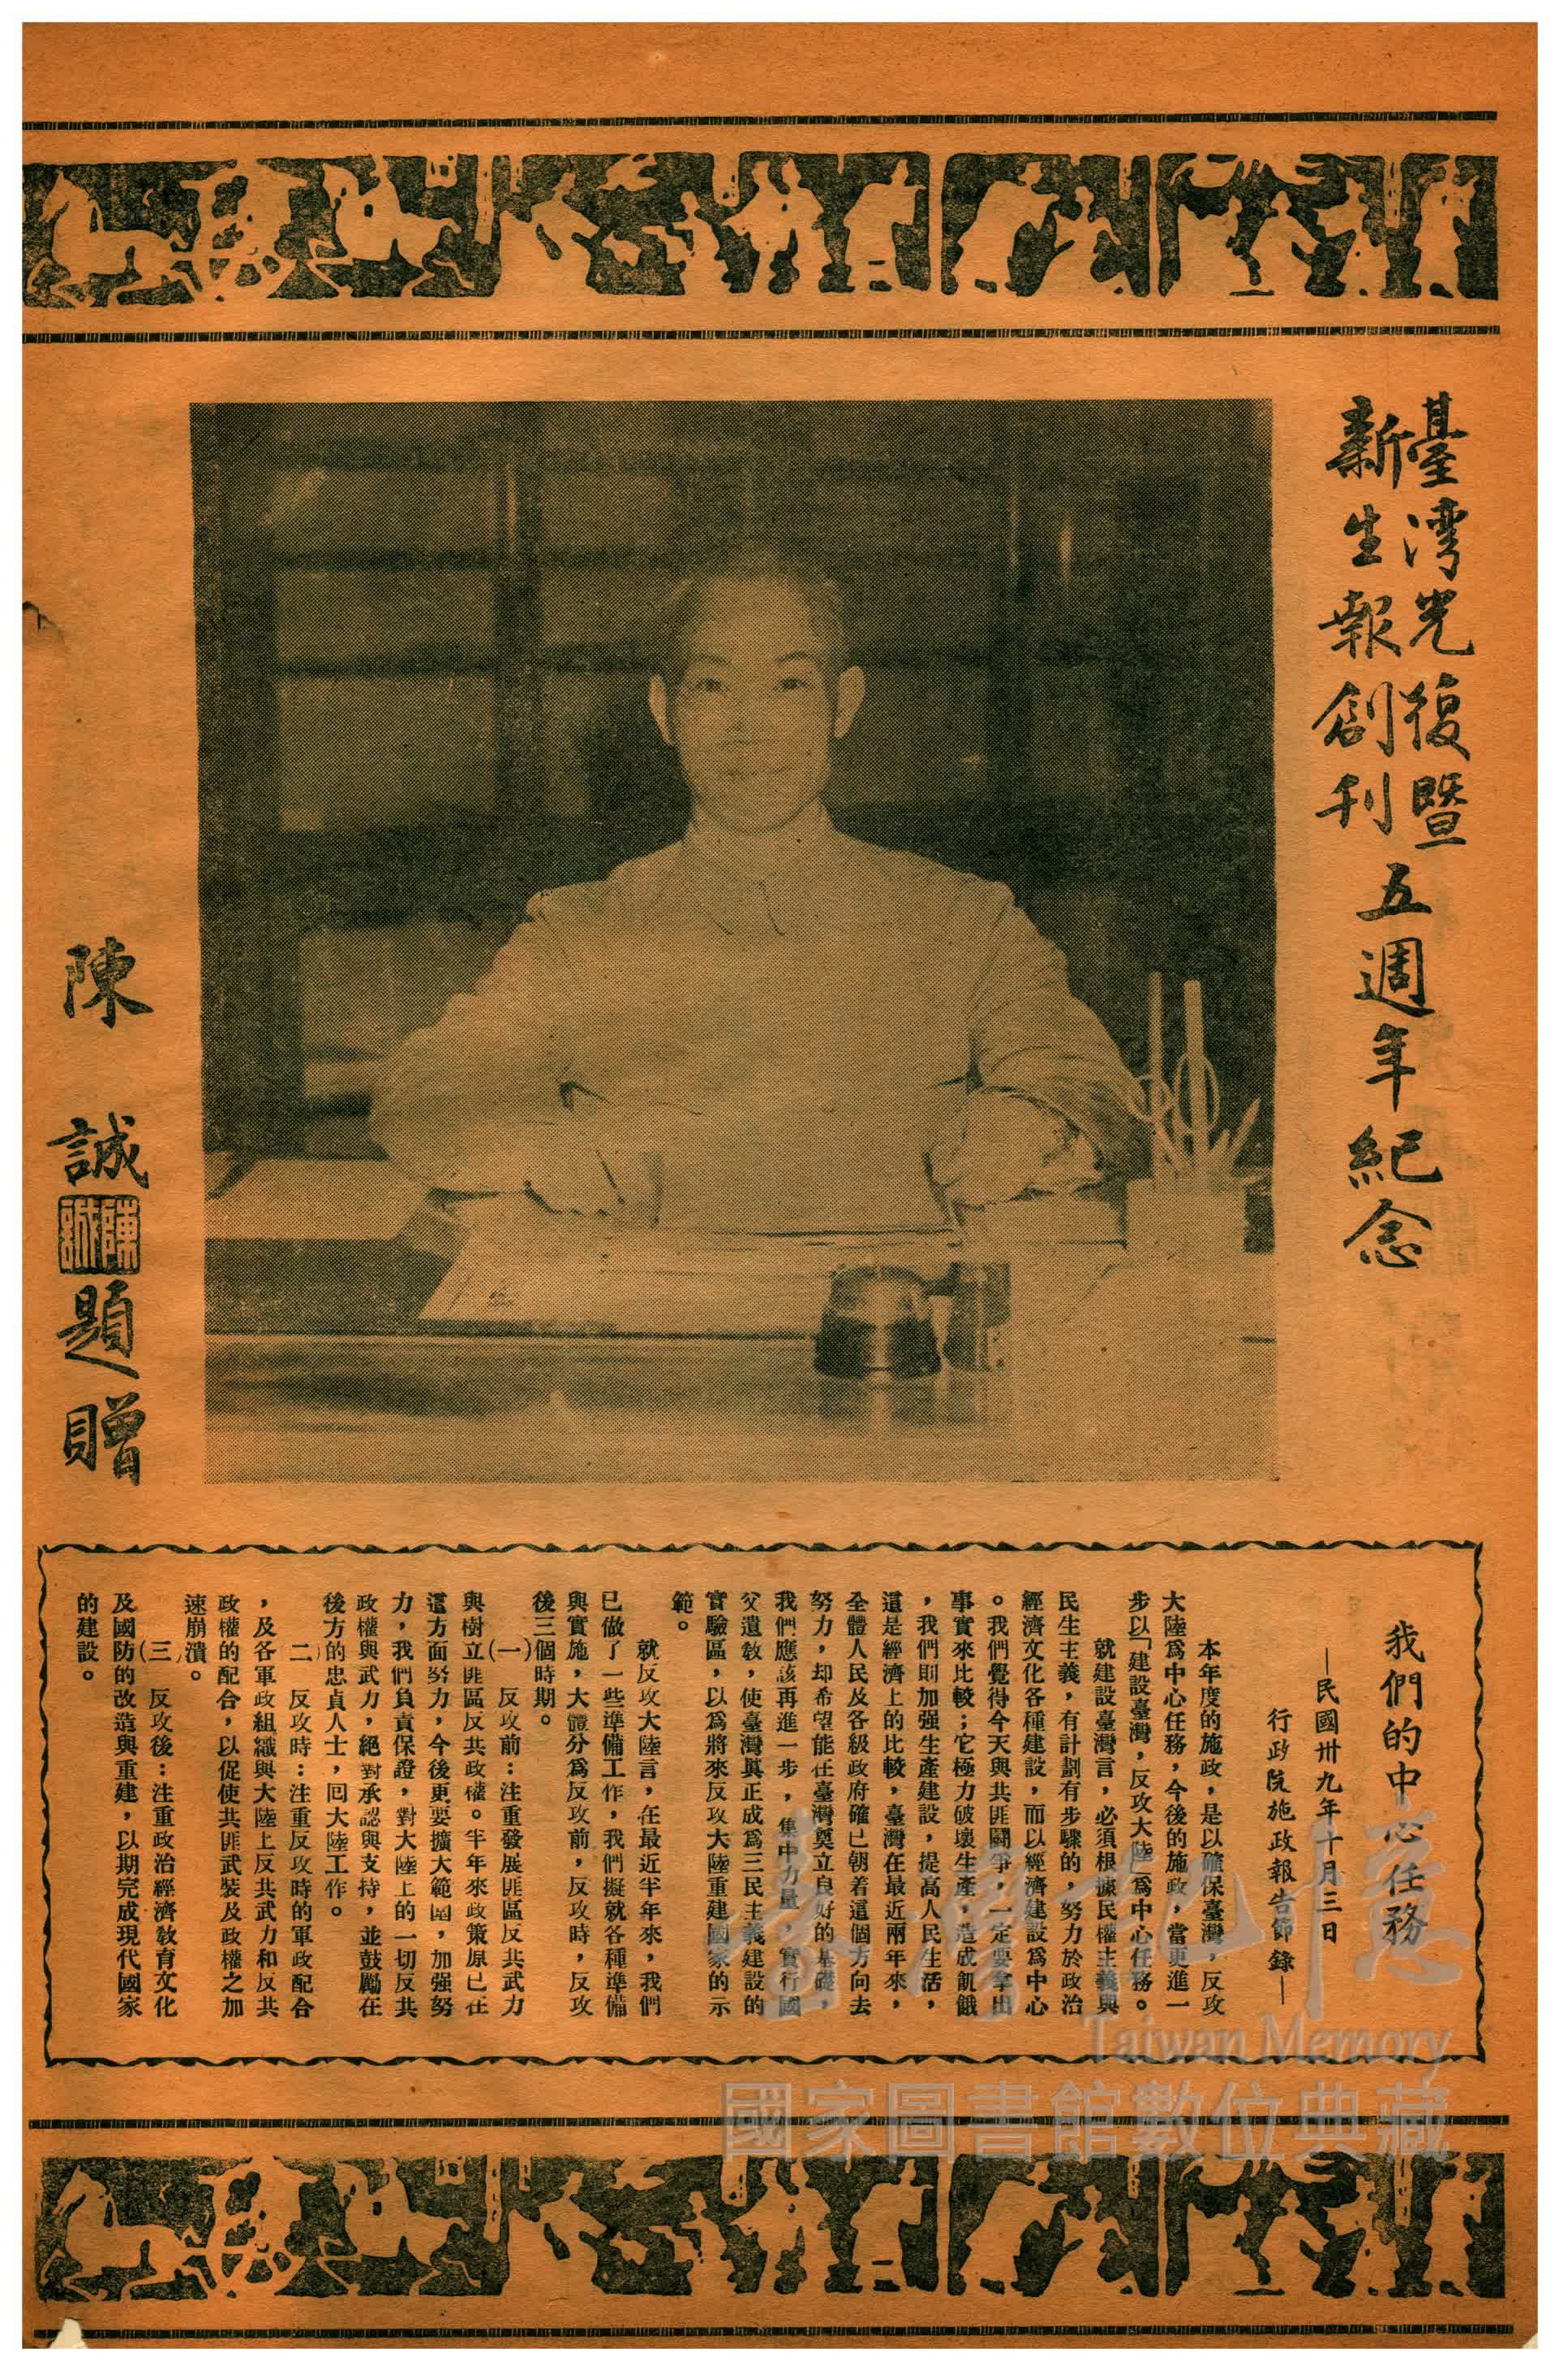 臺灣光復暨
新生報創刊
五週年紀念
陳誠
陳誠
題贈
我們的中心任務
—民國卅九年十月三日
行政院施政報告節錄—
本年度的施政，是以確保臺灣，反攻
大陸為中心任務，今後的施政，當更進一
步以「建設臺灣，反攻大陸」為中心任務。
就建設臺灣言，必須根據民權主義與
民生主義，有計劃有步驟的，努力於政治
經濟文化各種建設，而以經濟建設為中心
。我們覺得今天與共匪鬪爭，一定要拿出
事實來比較；它極力破壞生產，造成飢餓
，我們則加强生產建設，提高人民生活，
這是經濟上的比較，臺灣在最近兩年來，
全體人民及各級政府確已朝着這個方向去
努力，却希望能在臺灣奠立良好的基礎，
我們應該再進一步，集中力量，實行國
父遺敎，使臺灣眞正成為三民主義建設的
實驗區，以為將來反攻大陸重建國家的示
範。
就反攻大陸言，在最近半年來，我們
已做了一些準備工作，我們擬就各種準備
與實施，大體分為反攻前，反攻時，反攻
後三個時期。
(一) 反攻前：注重發展匪區反共武力
與樹立匪區反共政權。半年來政策原已在
這方面努力，今後更要擴大範圍，加强努
力，我們負責保證，對大陸上的一切反共
政權與武力，絕對承認與支持，並鼓勵在
後方的忠貞人士，回大陸工作。
(二) 反攻時：注重反攻時的軍政配合
，及各軍政組織與大陸上反共武力和反共
政權的配合，以促使共匪武裝及政權之加
速崩潰。
(三) 反攻後：注重政治經濟敎育文化
及國防的改造與重建，以期完成現代國家
的建設。
臺灣記憶
Taiwan Memory
國家圖書館數位典藏